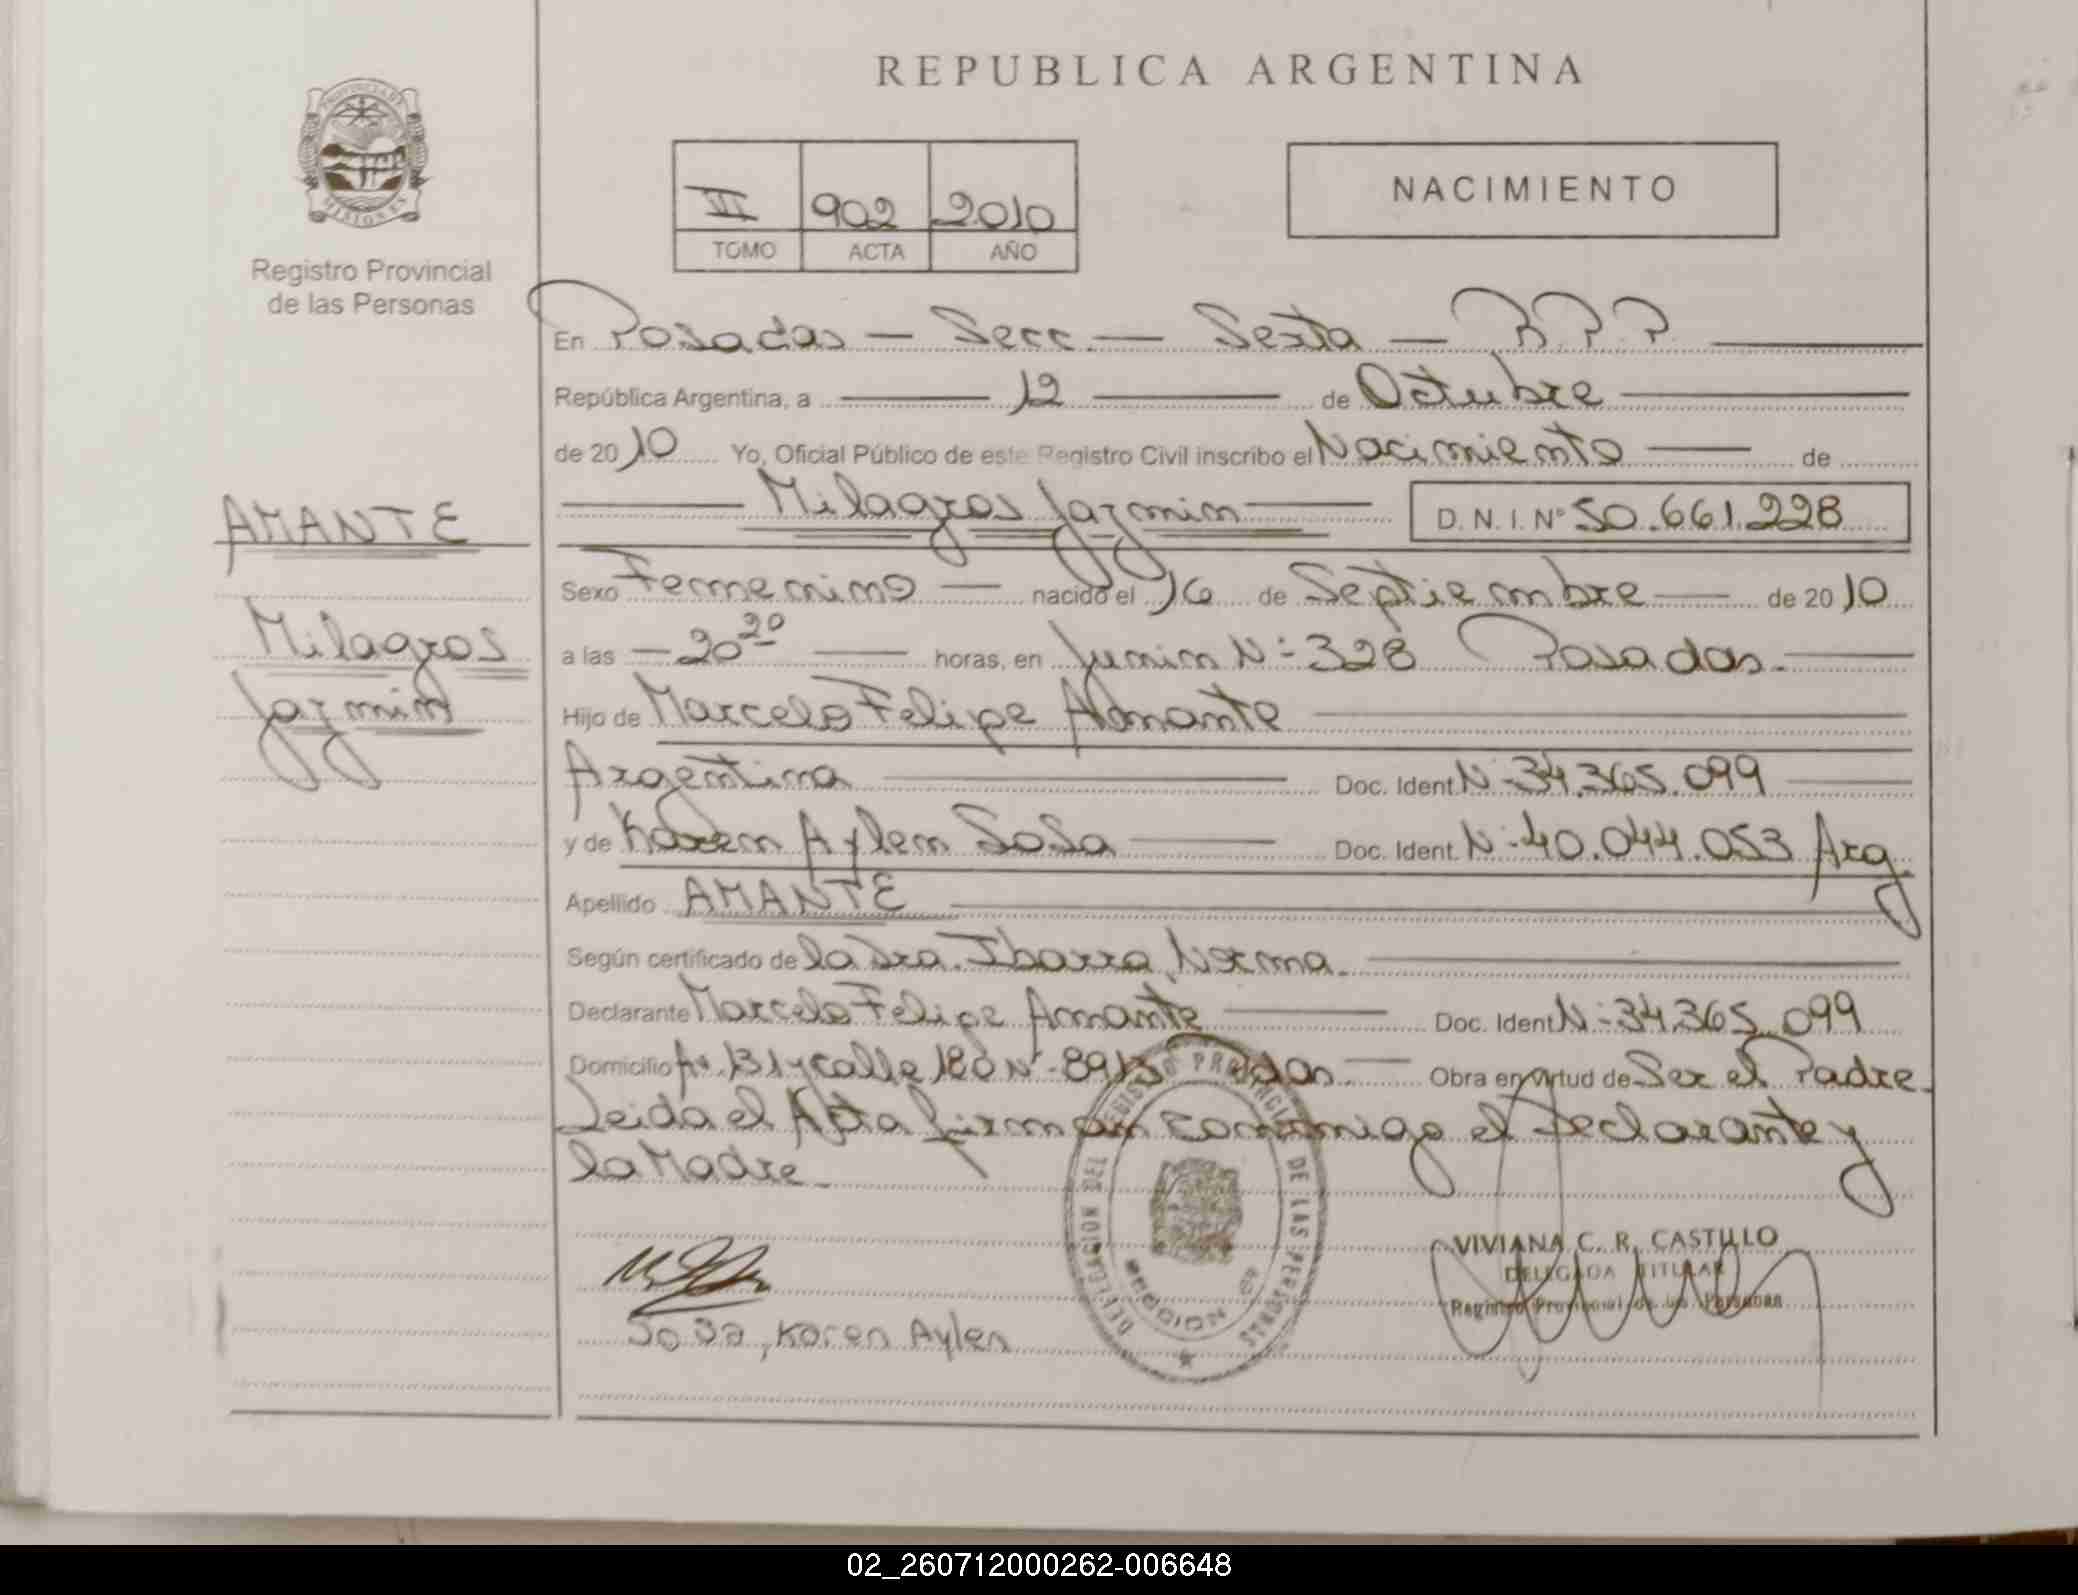 REPUBLICA ARGENTINA
PROVINCIA DE MISIONES
Registro Provincial
de las Personas
VII 902 2010
TOMO ACTA AÑO
NACIMIENTO
En Posadas — Secc. — Sexta — R.P.P.
República Argentina, a 12 de Octubre
de 2010 Yo, Oficial Público de este Registro Civil inscribo el Nacimiento de
Milagros Jazmin D.N.I. Nº 50.661.228
AMANTE
Milagros
Jazmin
Sexo Femenino — nacido el 16 de Septiembre — de 2010
a las — 20 20 — horas, en Junin Nº 328 Posadas.
Hijo de Marcelo Felipe Amante
Argentina Doc. Ident. Nº 34.365.099
y de Karen Aylen Sosa Doc. Ident. Nº 40.044.053 Arg.
Apellido AMANTE
Según certificado de la Dra. Ibarra, Norma.
Declarante Marcelo Felipe Amante Doc. Ident. Nº 34.365.099
Domicilio Av. 131 y calle 180 Nº 8913 Obra en virtud de Ser el Padre.
Leida el Acta firman conmigo el Declarante y
la Madre.
DELEGACION DEL REGISTRO PROVINCIAL DE LAS PERSONAS
SECCION 6ª
VIVIANA C. R. CASTILLO
DELEGADA TITULAR
Registro Provincial de las Personas
Sosa, Karen Aylen
02_260712000262-006648